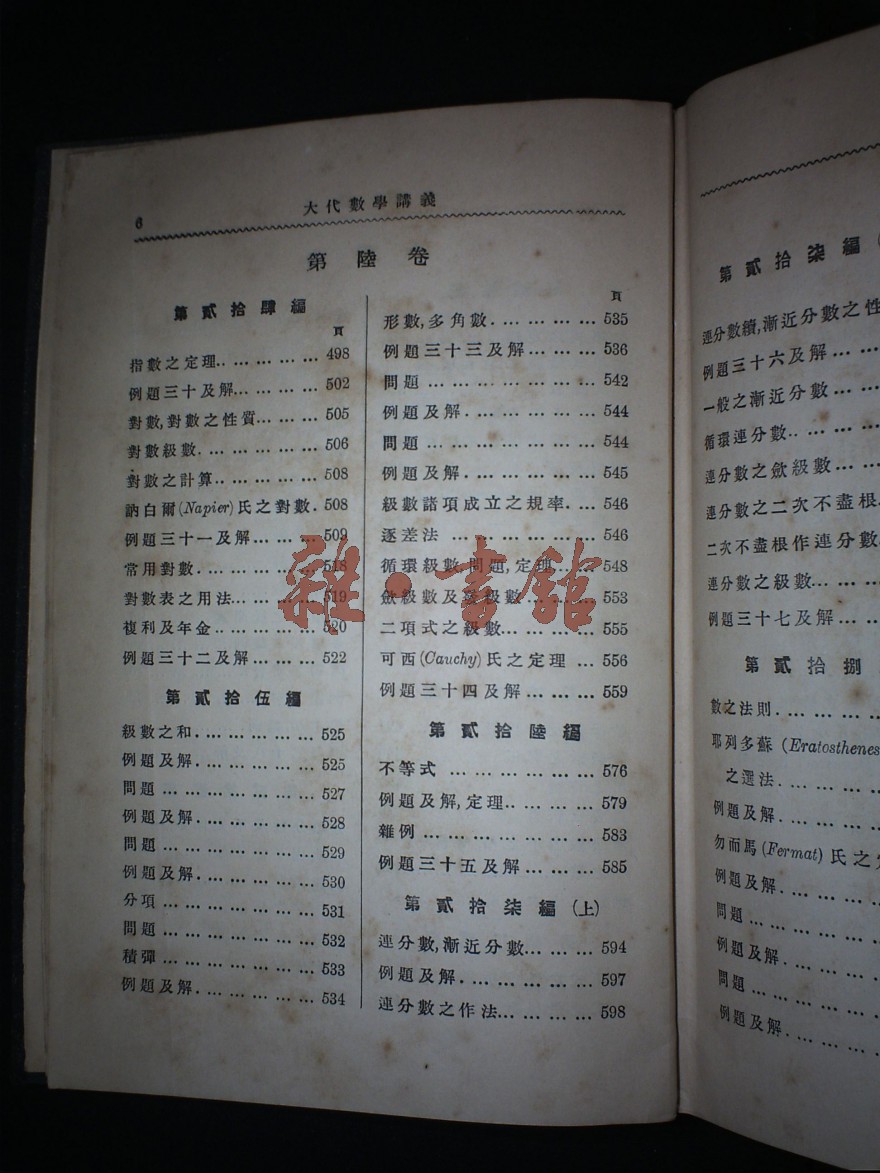 6
大代數學講義
第陸卷
第貳拾肆編
頁
指數之定理.. … … … … 498
例題三十及解… … … … 502
對數,對數之性質… … … 505
對數級數. … … … … … 506
對數之計算.. … … … … 508
訥白爾(Napier)氏之對數. 508
例題三十一及解… … … 509
常用對數. … … … … … 518
對數表之用法… … … … 519
複利及年金.. … … … … 520
例題三十二及解… … … 522
第貳拾伍編
級數之和. … … … … … 525
例題及解. … … … … … 525
問題 … … … … … … … 527
例題及解. … … … … … 528
問題 … … … … … … … 529
例題及解. … … … … … 530
分項 … … … … … … … 531
問題 … … … … … … … 532
積彈 … … … … … … … 533
例題及解. … … … … … 534
頁
形數,多角數. … … … … 535
例題三十三及解… … … 536
問題 … … … … … … … 542
例題及解. … … … … … 544
問題 … … … … … … … 544
例題及解. … … … … … 545
級數諸項成立之規率. … 546
逐差法 … … … … … … 546
循環級數,問題,定理… … 548
斂級數及發級數… … … 553
二項式之級數… … … … 555
可西(Cauchy)氏之定理 … 556
例題三十四及解… … … 559
第貳拾陸編
不等式 … … … … … … 576
例題及解,定理.. … … … 579
雜例 … … … … … … … 583
例題三十五及解… … … 585
第貳拾柒編(上)
連分數,漸近分數… … … 594
例題及解. … … … … … 597
連分數之作法… … … … 598
第貳拾柒編(
連分數續,漸近分數之性
例題三十六及解… …
一般之漸近分數… …
循環連分數.. … … …
連分數之斂級數… …
連分數之二次不盡根
二次不盡根作連分數
連分數之級數… … …
例題三十七及解… …
第貳拾捌
數之法則. … … …
耶列多蘇 (Eratosthenes
之選法. … … …
例題及解. … … …
勿而馬(Fermat)氏之
例題及解. … … …
問題 … … … …
例題及解. … … …
問題 … … … …
例題及解. … … …
雜·書館